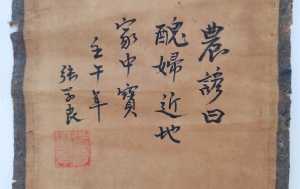 農諺曰
醜婦近地
家中寶
壬午年
張学良